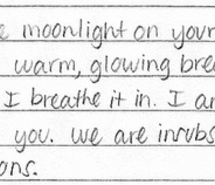 e moonlight on your
warm, glowing brea
I breathe it in. I am
you. we are insubs
ons.